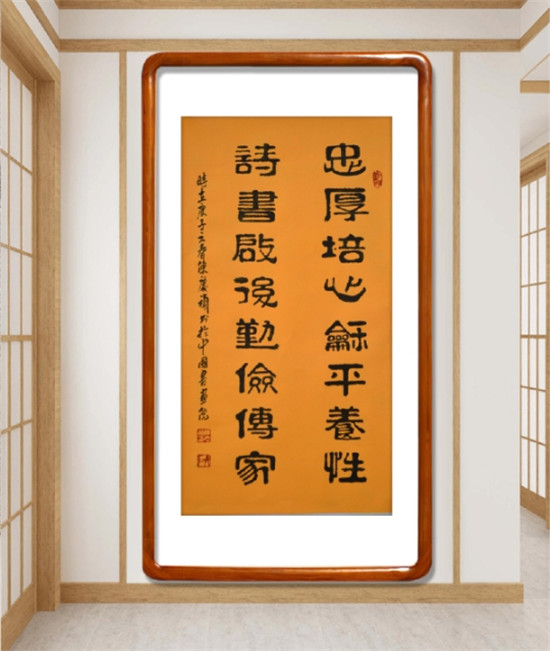 忠厚培心龢平養性
詩書啟後勤儉傳家
時在庚子之春陳慶書於中國書畫院